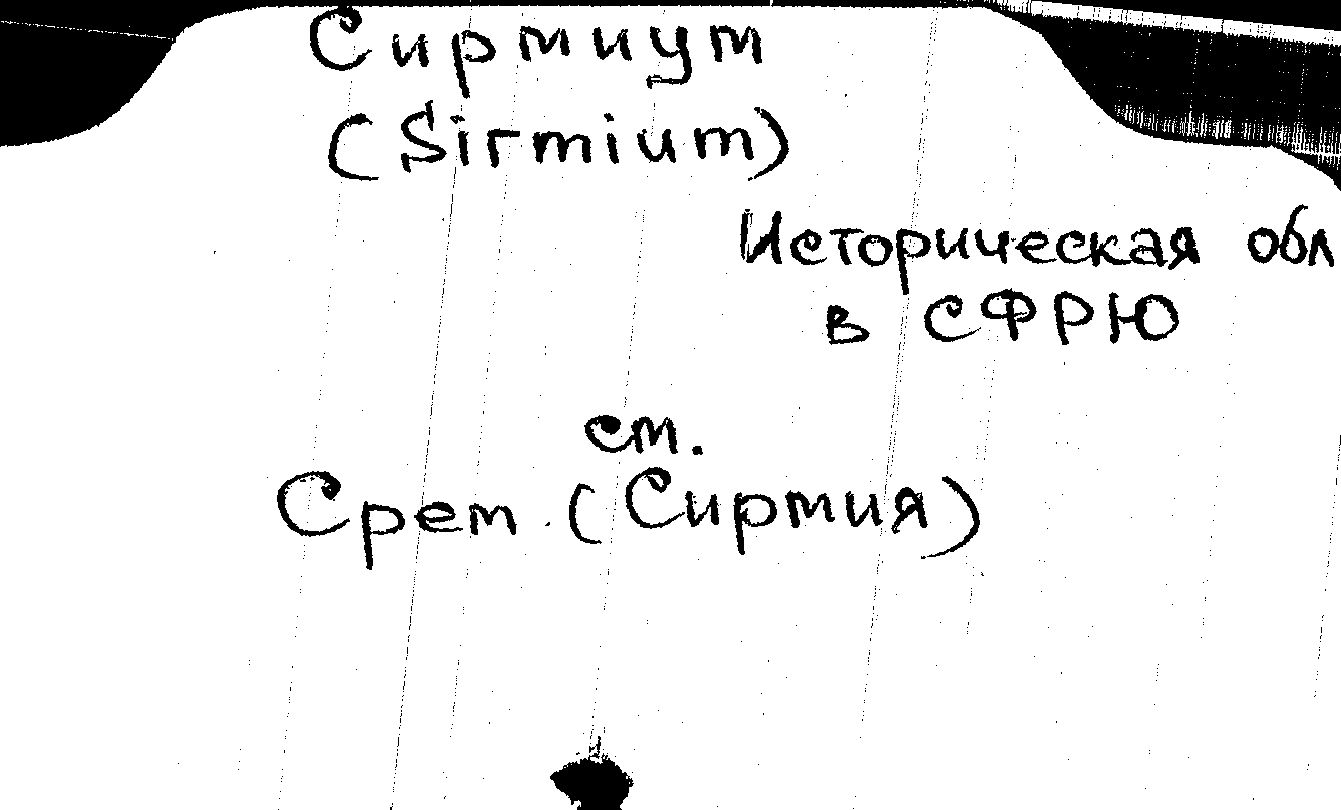 Сирмиум
(Sirmium)
Историческая обл
в СФРЮ
см.
Срем (Сирмия)